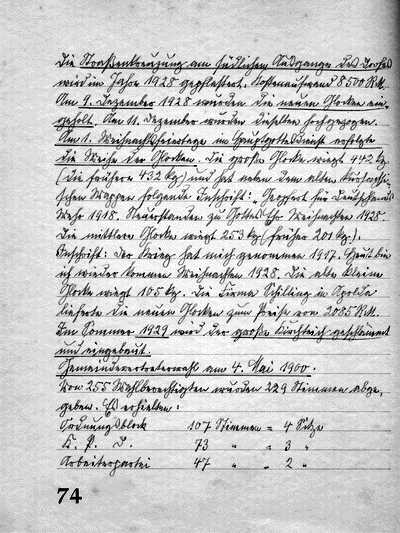 Die Straßenkreuzung am südlichen Ausgange des Dorfes
wird im Jahre 1928 gepflastert. Kostenaufwand 8500 RM.
Am 9. Dezember 1928 wurden die neuen Glocken ein-
geholt. Am 11. Dezember wurden dieselben hochgezogen.
Am 1. Weihnachtsfeiertage im Hauptgottesdienst erfolgte
die Weihe der Glocken. Die große Glocke wiegt 442 kg.
(die frühere 432 kg) und hat neben dem alten
schen Wappen folgende Inschrift: Geopfert für Deutschlands
Wehr 1918. Neuerstanden zu Gottes Ehr Weihnachten 1928.
Die mittlere Glocke wiegt 253 kg (früher 201 kg.).
Inschrift: Der Krieg hat mich genommen 1917. Heut bin
ich wieder kommen Weihnachten 1928. Die alte kleine
Glocke wiegt 105 kg. Die Firma Schilling in Apolda
lieferte die neuen Glocken zum Preise von 2085 RM.
Im Sommer 1929 wird der große Kirchteich geschlämmt
und eingebaut.
Gemeindevertreterwahl am 4. Mai
Von 255 Wahlberechtigten wurden 229 Stimmen abge-
geben. Es erhielten:
Ordnungsblock 107 Stimmen = 4 Sitze
K. P. D. 73 " = 3 "
Arbeiterpartei 47 " " 2 "
74